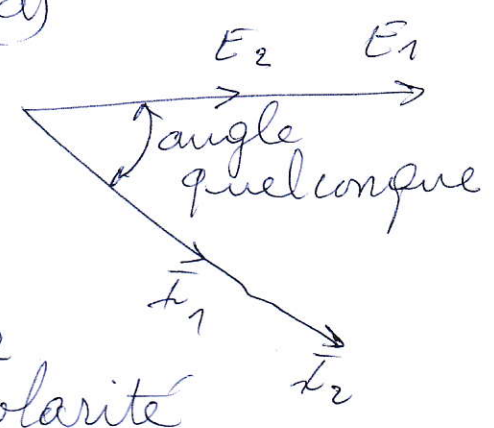 d)
E₂ E₁
angle
quelconque
Ī₁
Ī₂
olarité